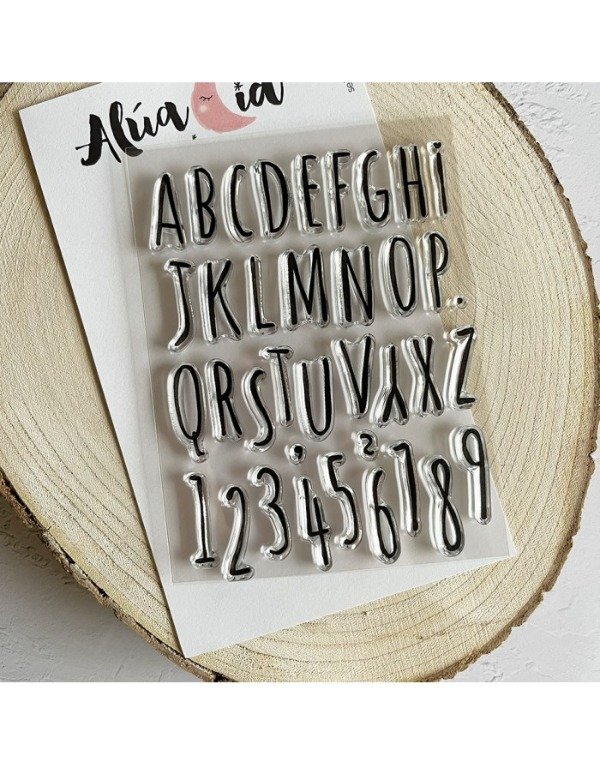 Alúa Cid
ABCDEFGHi
JKLMNOP.
QRSTUVYXZ
123456789